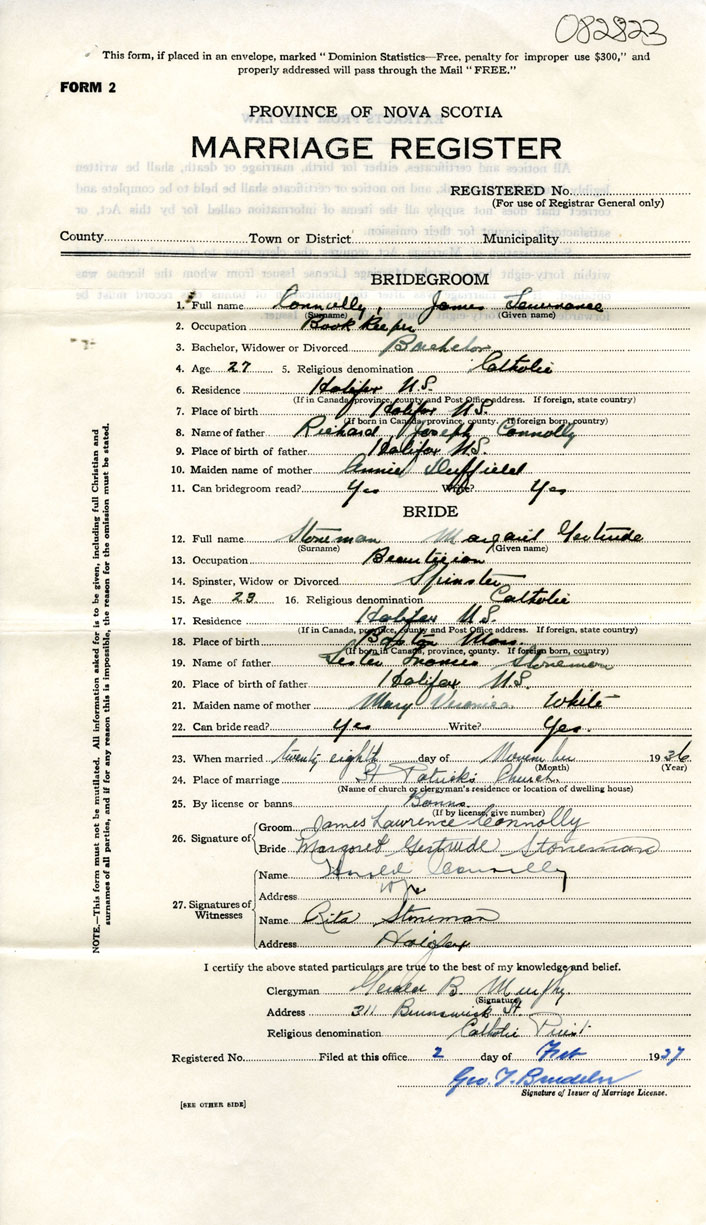 082823
This form, if placed in an envelope, marked "Dominion Statistics—Free, penalty for improper use $300," and
properly addressed will pass through the Mail "FREE."
FORM 2
PROVINCE OF NOVA SCOTIA
MARRIAGE REGISTER
REGISTERED No.
(For use of Registrar General only)
County Town or District Municipality
BRIDEGROOM
1. Full name Connolly, James
(Surname) (Given name)
2. Occupation Book Keeper
3. Bachelor, Widower or Divorced Bachelor
4. Age 27 5. Religious denomination Catholic
6. Residence Halifax N.S.
(If in Canada, province, county and Post Office address. If foreign, state country)
7. Place of birth Halifax N.S.
(If born in Canada, province, county. If foreign born, country)
8. Name of father Richard Joseph Connolly
9. Place of birth of father Halifax N.S.
10. Maiden name of mother Annie Duffield
11. Can bridegroom read? Yes Write? Yes
BRIDE
12. Full name Stoneman Margaret Gertrude
(Surname) (Given name)
13. Occupation Beautician
14. Spinster, Widow or Divorced Spinster
15. Age 23 16. Religious denomination Catholic
17. Residence Halifax N.S.
(If in Canada, province, county and Post Office address. If foreign, state country)
18. Place of birth Boston Mass
(If born in Canada, province, county. If foreign born, country)
19. Name of father Lester Francis Stoneman
20. Place of birth of father Halifax N.S.
21. Maiden name of mother Mary Veronica White
22. Can bride read? Yes Write? Yes.
23. When married twenty eighth day of November 1936
(Month) (Year)
24. Place of marriage St Patrick's Church
(Name of church or clergyman's residence or location of dwelling house)
25. By license or banns Banns
(If by license, give number)
26. Signature of
Groom James Lawrence Connolly
Bride Margaret Gertrude Stoneman
27. Signatures of Witnesses
Name Harold Connolly
Address
Name Rita Stoneman
Address Halifax
I certify the above stated particulars are true to the best of my knowledge and belief.
Clergyman Gerald B. Murphy
(Signature)
Address 311 Brunswick St.
Religious denomination Catholic Priest
Registered No. Filed at this office 2 day of Feb 1937
Geo. T.
Signature of Issuer of Marriage License.
[SEE OTHER SIDE]
NOTE.—This form must not be mutilated. All information asked for is to be given, including full Christian and
surnames of all parties, and if for any reason this is impossible, the reason for the omission must be stated.